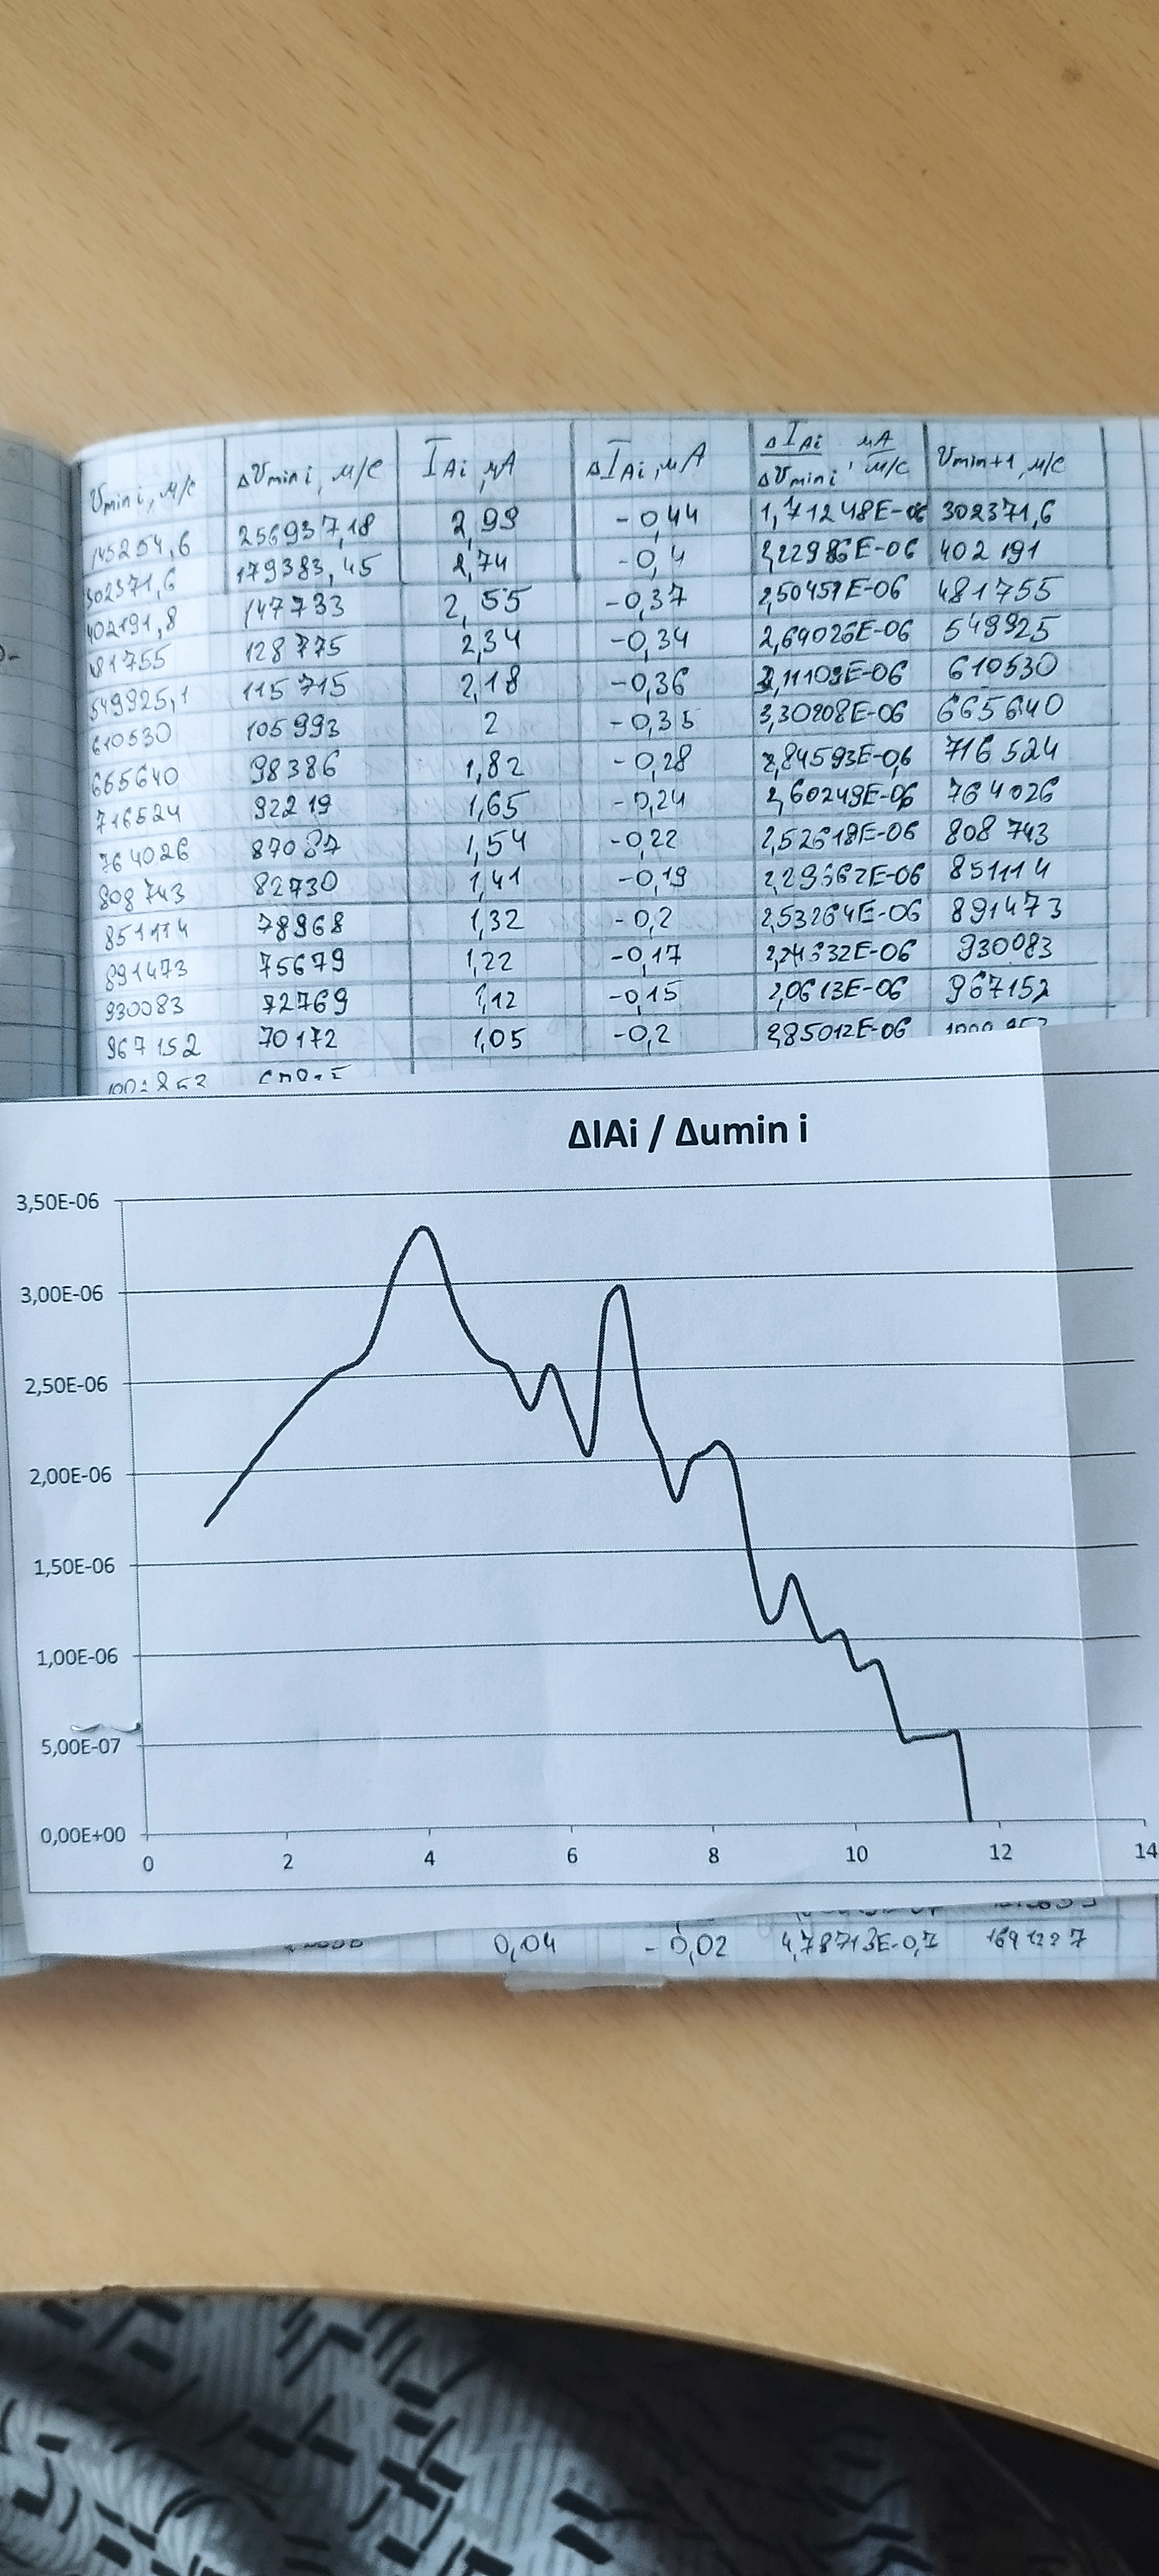 υmin i, м/с Δυmin i, м/с IAi, мА ΔIAi, мА ΔIAi/Δυmin i, мА/м/с υmin+1, м/с
145254,6 256937,18 2,99 -0,44 1,71248E-06 302371,6
302371,6 179383,45 2,74 -0,4 2,22986E-06 402191
402191,8 147733 2,55 -0,37 2,50459E-06 481755
81755 128775 2,34 -0,34 2,64026E-06 549925
549925,1 115715 2,18 -0,36 3,11109E-06 610530
610530 105993 2 -0,35 3,30208E-06 665640
665640 98386 1,82 -0,28 2,84593E-0,6 716524
716524 92219 1,65 -0,24 2,60249E-06 764026
764026 87087 1,54 -0,22 2,52618E-06 808743
808743 82730 1,41 -0,19 2,29662E-06 851114
851114 78968 1,32 -0,2 2,53264E-06 891473
891473 75679 1,22 -0,17 2,24632E-06 930083
930083 72769 1,12 -0,15 2,0613E-06 967152
967152 70172 1,05 -0,2 2,85012E-06
ΔIAi / Δumin i
3,50E-06
3,00E-06
2,50E-06
2,00E-06
1,50E-06
1,00E-06
5,00E-07
0,00E+00
0 2 4 6 8 10 12 14
0,04 -0,02 4,78713E-0,7 1691227